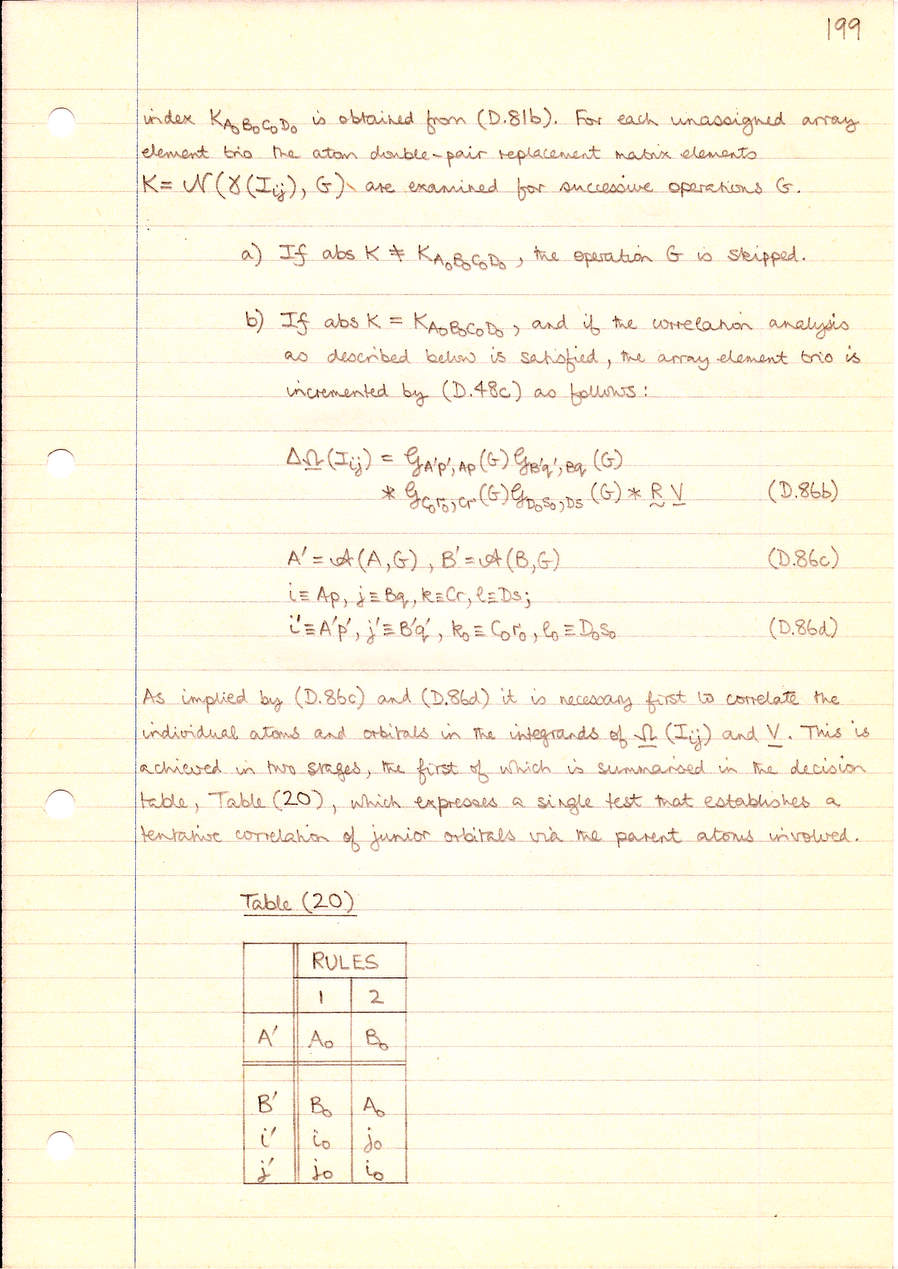 199
index K_{A₀B₀C₀D₀} is obtained from (D.81b). For each unassigned array
element trio the atom double-pair replacement matrix elements
K = 𝒩(γ(I_{ij}), G) are examined for successive operations G.
a) If abs K ≠ K_{A₀B₀C₀D₀}, the operation G is skipped.
b) If abs K = K_{A₀B₀C₀D₀}, and if the correlation analysis
as described below is satisfied, the array element trio is
incremented by (D.48c) as follows:
ΔΩ(I_{ij}) = 𝒢_{A'p',Ap}(G) 𝒢_{B'q',Bq}(G)
* 𝒢_{C₀r₀,Cr}(G) 𝒢_{D₀s₀,Ds}(G) * R V (D.86b)
A' = 𝒜(A,G), B' = 𝒜(B,G) (D.86c)
i ≡ Ap, j ≡ Bq, k ≡ Cr, l ≡ Ds;
i' ≡ A'p', j' ≡ B'q', k₀ ≡ C₀r₀, l₀ ≡ D₀s₀ (D.86d)
As implied by (D.86c) and (D.86d) it is necessary first to correlate the
individual atoms and orbitals in the integrands of Ω(I_{ij}) and V. This is
achieved in two stages, the first of which is summarised in the decision
table, Table (20), which expresses a single test that establishes a
tentative correlation of junior orbitals via the parent atoms involved.
Table (20)
RULES
1 2
A' A₀ B₀
B' B₀ A₀
i' i₀ j₀
j' j₀ i₀